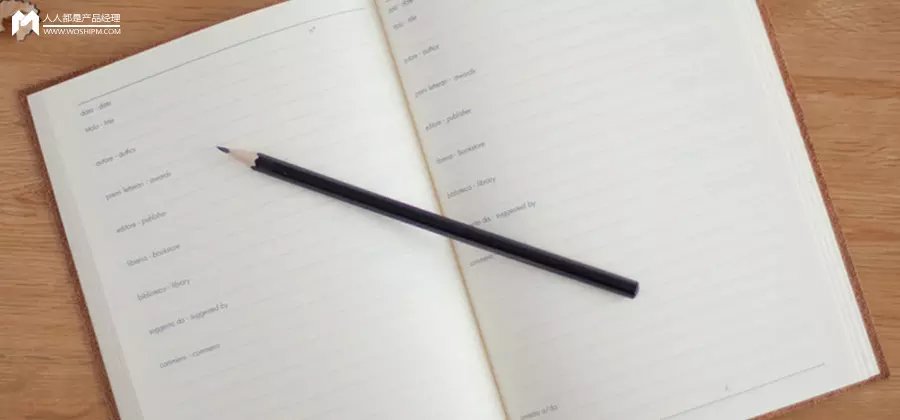 人人都是产品经理
WWW.WOSHIPM.COM
data - date
titolo - title
autore - author
premi letterari - awards
editore - publisher
libreria - bookstore
biblioteca - library
suggerito da - suggested by
commenti - comments
titolo - title
autore - author
premi letterari - awards
editore - publisher
libreria - bookstore
biblioteca - library
da - suggested by